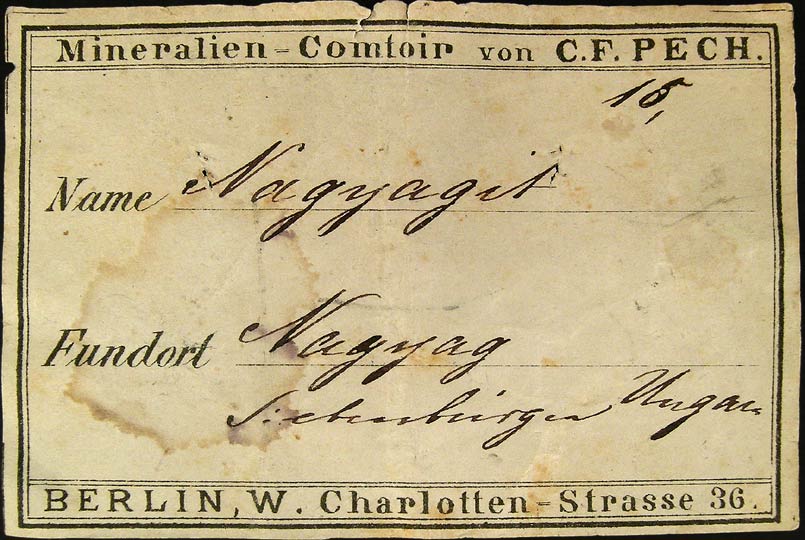 Mineralien-Comtoir von C.F. PECH.
18,
Name Nagyagit
Fundort Nagyag
Siebenbürgen Ungarn
BERLIN, W. Charlotten-Strasse 36.